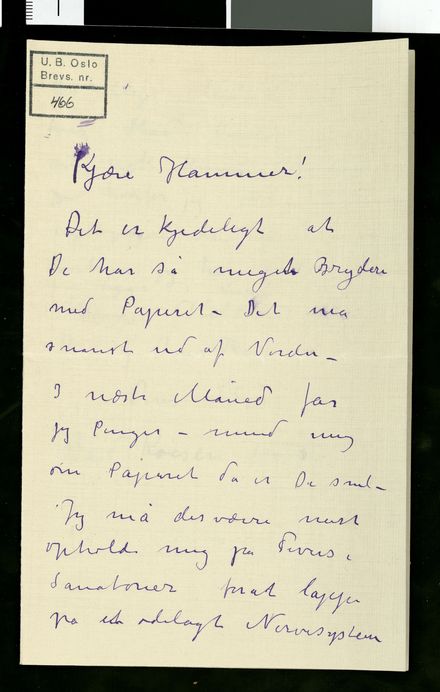 U. B. Oslo
Brevs. nr.
466
Kjære Hammer!
Det er kjedeligt at
De har så meget Bryderi
med Papiret – Det må
snarest ud af Verden –
I næste Måned får
jeg Penger – mind mig
om Papiret da er De snil –
Jeg må desværre mest
opholde mig på
Sanatorier forat lappe
på et ødelagt Nervesystem